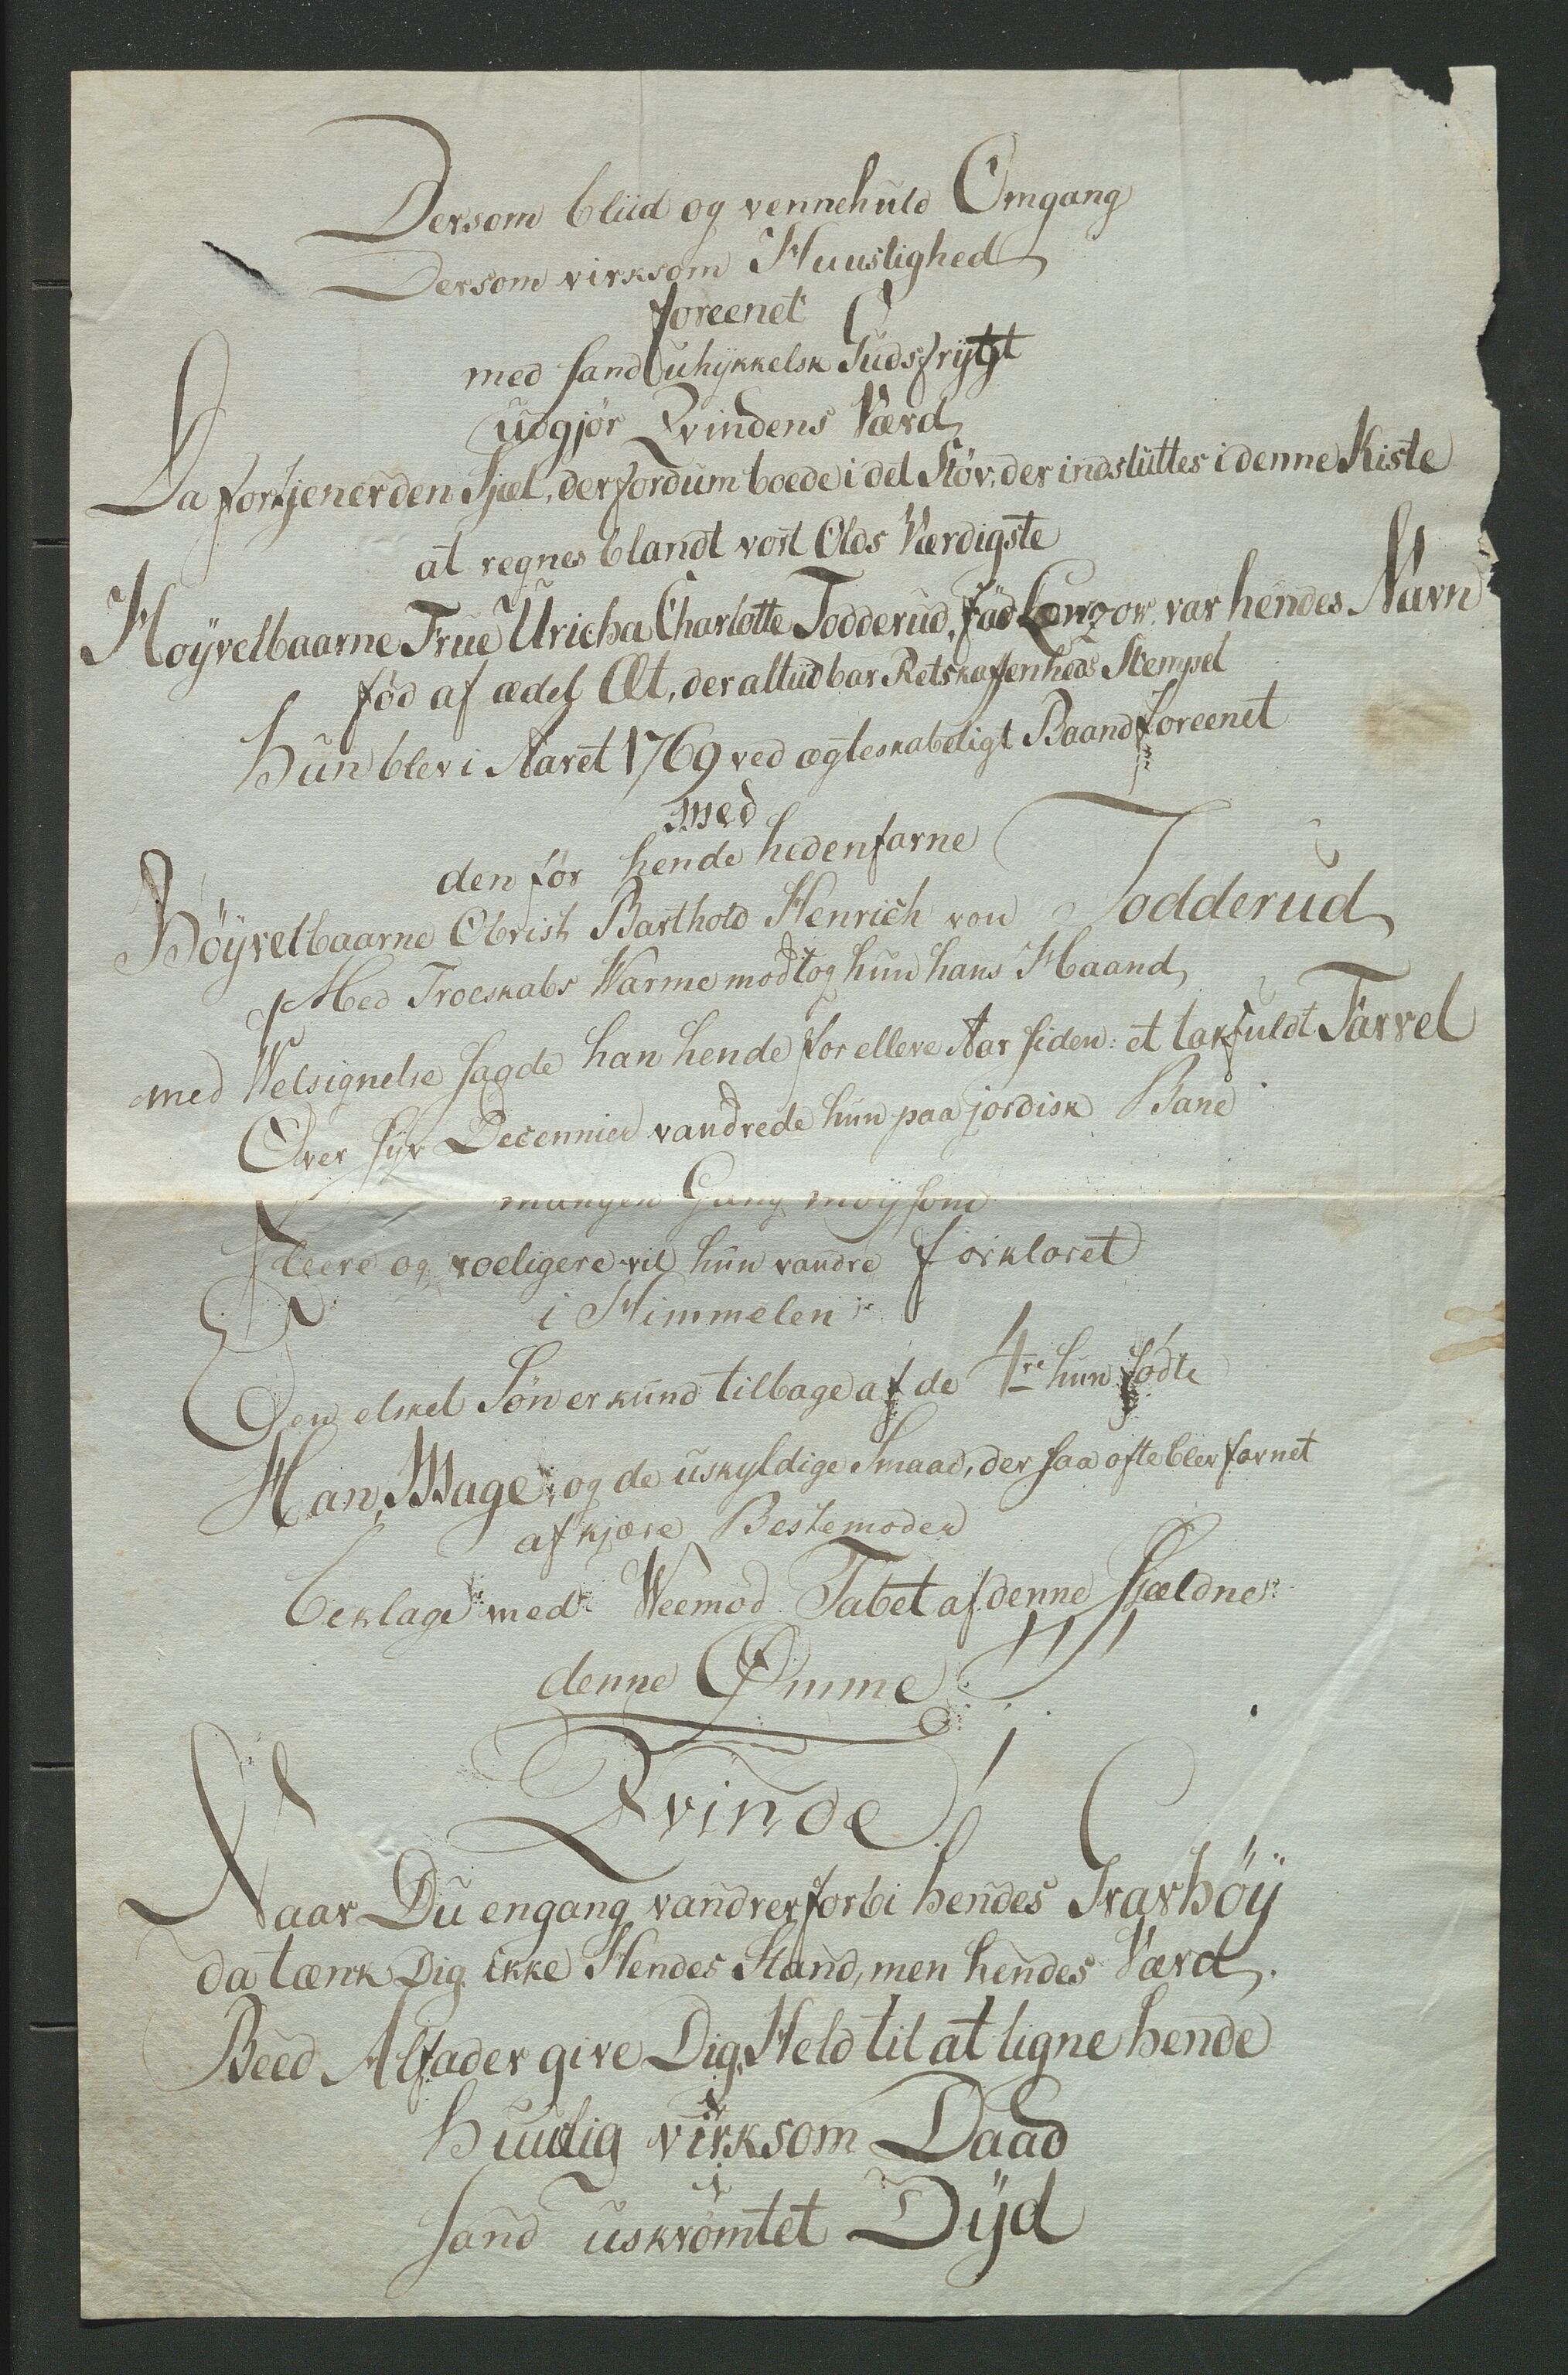 Dersom bliid og vennehuld Omgang
Dersom virksom Huuslighed
foreenet
med sand uhykkelsk Gudsfrygt
udgjør Qvindens Værd
Da fortjener den Sjæl, der fordum boede i det Støv, der indsluttes i denne Kiste
at regnes blandt vort Olds Værdigste
Høyvelbaarne Frue Ulricha Charlotte Todderud, fød Lowzow var hendes Navn
fød af ædel Æt, der altiid bar Retskaffenheds Stempel
hun blev i Aaret 1769 ved ægteskabeligt Baand foreenet
med
den før hende hedenfarne
Høyvelbaarne Obrist Barthold Henrich von Todderud
Med Troeskabs Varme modtog hun hans Haand
med Velsignelse sagde han hende for elleve Aar siden et takfuldt Farvel
Over syv Decennier vandrede hun paa jordisk Bane
mangen Gang møysom
Fleere og roeligere vil hun vandre forklaret
i Himmelen
Een elsket Søn er kund tilbage af de 4re hun fødte
Han, Mage, og de uskyldige Smaae, der saa ofte blev favnet
af kjære Bestemoder
beklage med Veemod Tabet af denne Sjældne
denne Ømme
Qvinde!
Naar Du engang vandrer forbi hendes Gravhøy
da tænk Dig ikke Hendes Stand, men hendes Værd.
Beed Alfader give Dig Held til at ligne hende
i
huuslig virksom Daad
i
sand uskrømtet Dyd